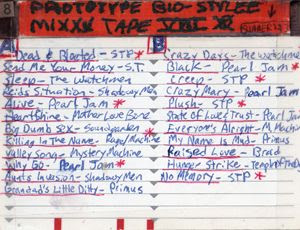 8
PROTOTYPE BIO-STYLEE
MIXXX TAPE
SUMMER
A
Dead & Bloated - STP *
Send Me Your Money - S.T.
Sleep - The Watchmen
Reids Situation - Shadowy Men
Alive - Pearl Jam *
Heartshine - Mother Love Bone
Big Dumb Sex - Soundgarden *
Killing In The Name - Rage/Machine
Valley Song - Mystery Machine
Why Go - Pearl Jam *
Aunts Invasion - Shadowy Men
Grandad's Little Ditty - Primus
B
Crazy Days - The Watchmen
Black - Pearl Jam *
Creep - STP *
Crazy Mary - Pearl Jam
Plush - STP *
State Of Love/Trust - Pearl Jam
Everyone's Alright - M
My Name Is Mud - Primus
Raised Love - Brad
Hunger Strike - Temple of the
No Memory - STP *